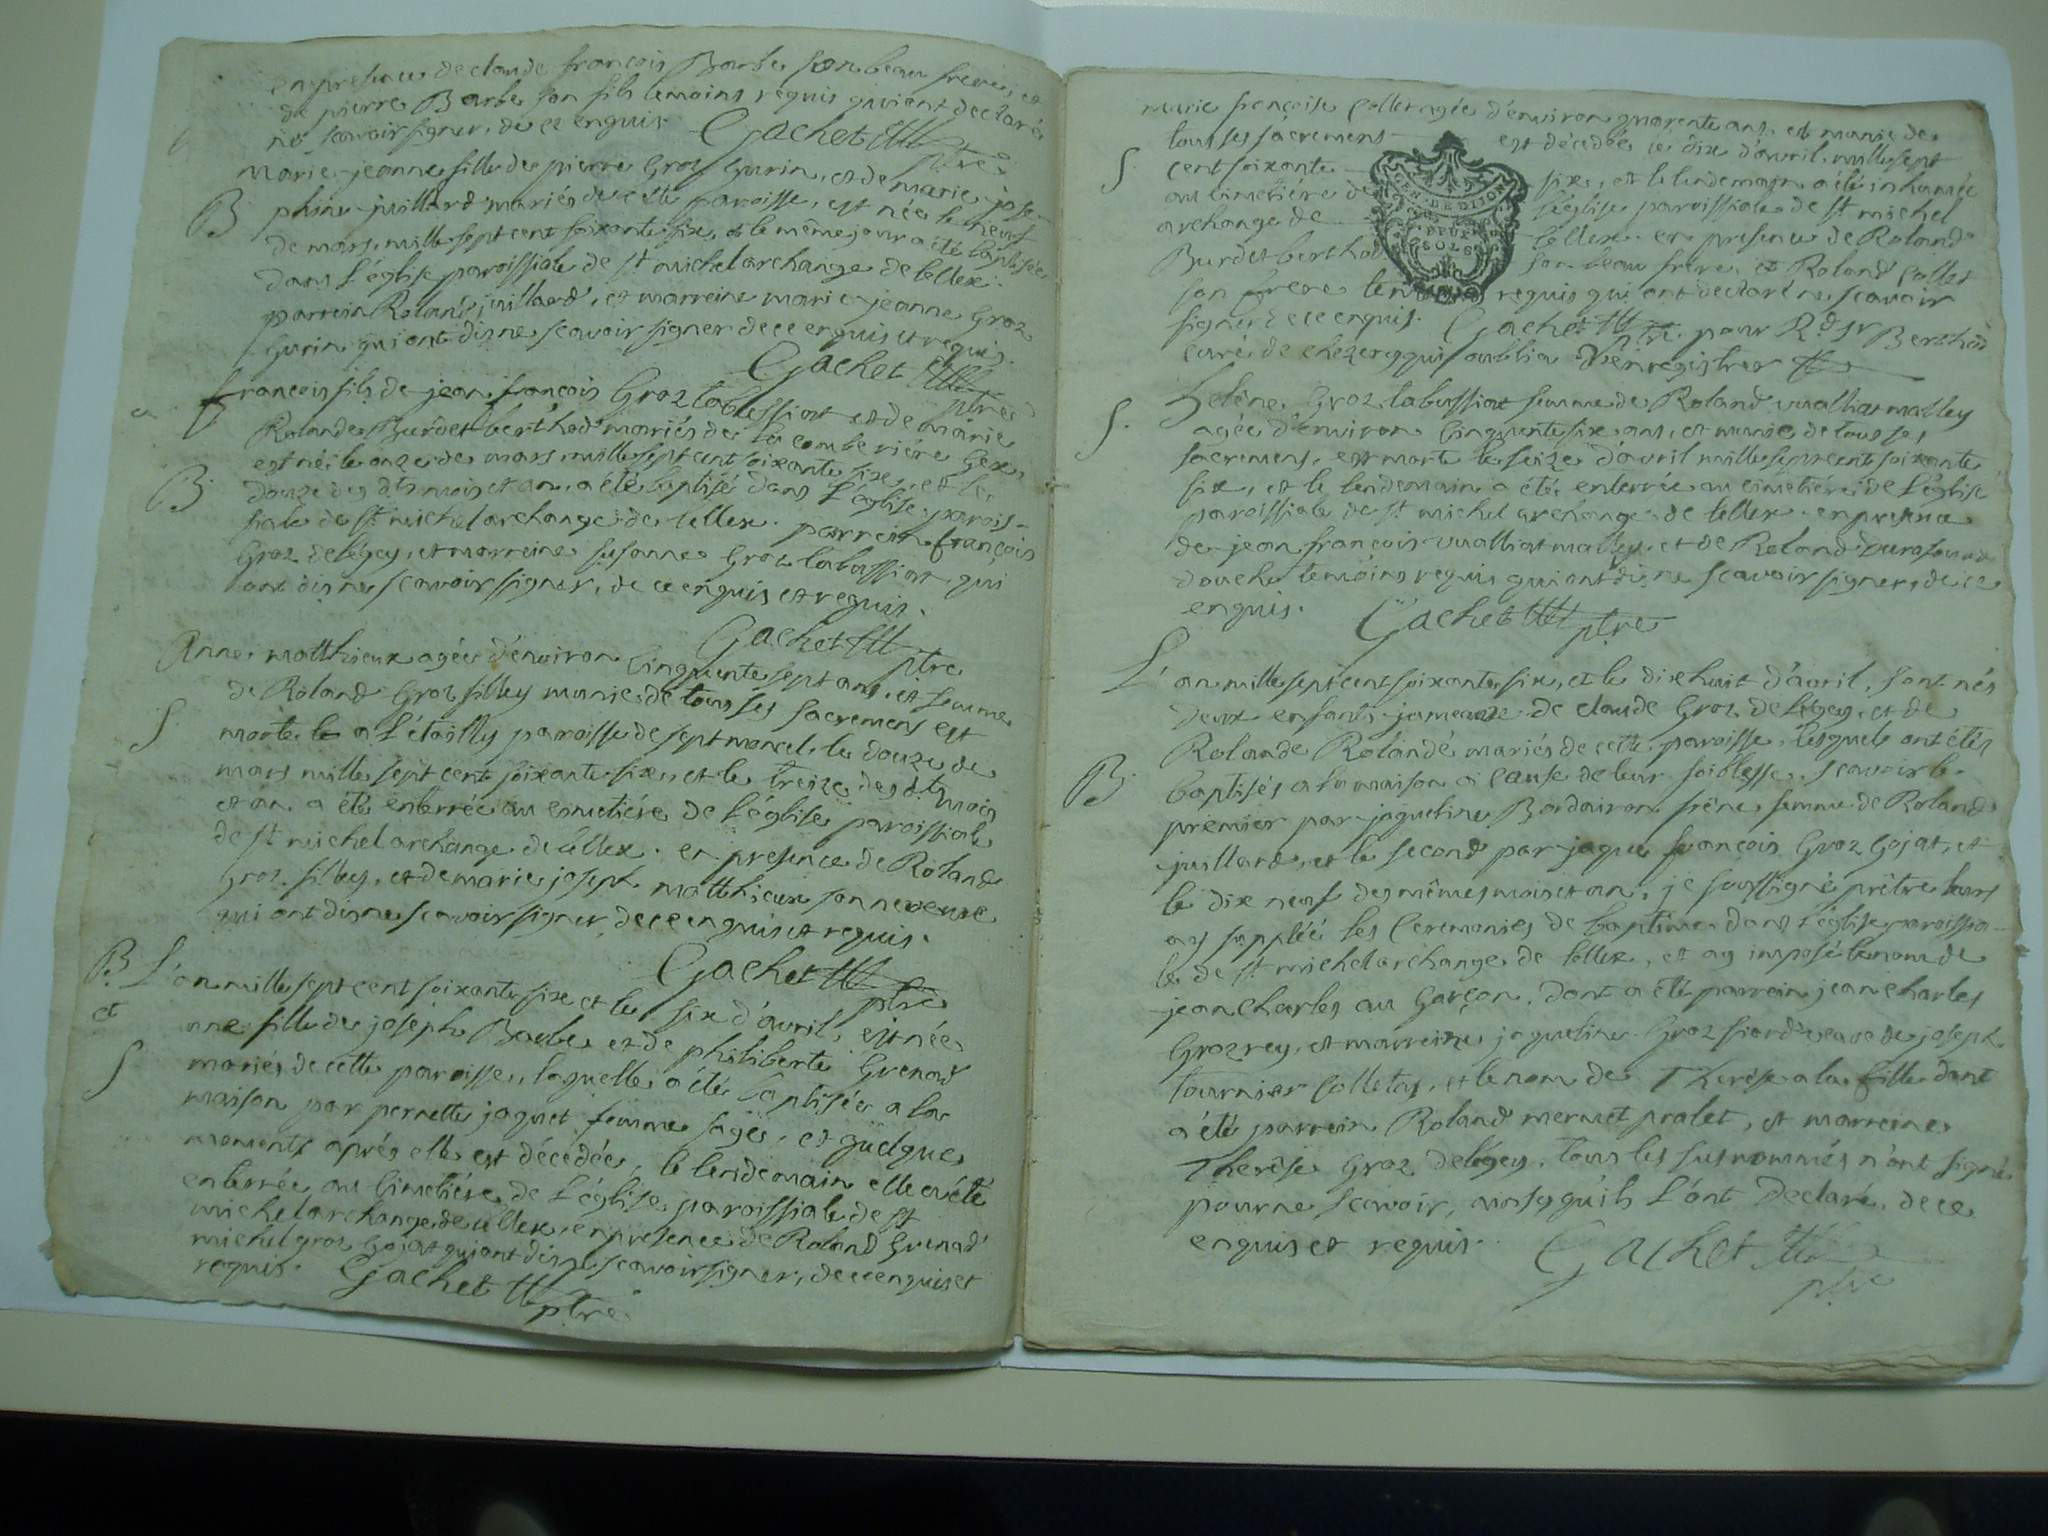 en presence de claude françois Barbe son beau frere, et
de pierre Barbe son fils temoins requis qui ont declaré
ne scavoir signer, de ce enquis. Gachet ptre
Marie jeanne fille de pierre Groz Gurin, et de marie jose-
B phine juillard mariés de cette paroisse, est née le neuf
de mars, mille sept cent soixante six, et le même jour a été baptisée
dans l'église paroissiale de st michel archange de lellex.
parrein Roland juillard, et marreine marie jeanne Groz
Gurin qui ont dis ne scavoir signer de ce enquis et requis.
Gachet ptre
françois fils de jean françois Groz labussiat et de marie
Rolande Burdet berthod mariés de la combe
est né le onze de mars, mille sept cent soixante six, et le
B douze des dts mois et an, a été baptisé dans l'église parois-
siale de st michel archange de lellex. parrein françois
Groz delégey, et marreine susanne Groz labussiat qui
ont dis ne scavoir signer, de ce enquis et requis.
Gachet ptre
Anne matthieux agée d'environ cinquante sept ans, et femme
de Roland Groz filley munie de tous ses sacremens est
S morte a L'étailly paroisse de septmoncel le douze de
mars mille sept cent soixante six, et le treize des dts mois
et an a été enterrée au cimetiére de l'église paroissiale
de st michel archange de lellex. en presence de Roland
Groz filley, et de marie joseph matthieux son neveu
qui ont dis ne scavoir signer, de ce enquis et requis.
Gachet ptre
B L'an mille sept cent soixante six et le six d'avril, est née
et une fille de joseph Barbe et de philiberte Grenad
S mariés de cette paroisse, laquelle a été baptisée a la
maison par pernette jaquet femme sage, et quelque
moments aprés elle est décedée, le lendemain elle a été
enterrée au cimetiére de l'église paroissiale de st
michel archange de lellex, en presence de Roland Grenad
michel groz Gojat qui ont dis ne scavoir signer, de ce enquis et
requis. Gachet ptre
marie françoise Collet agée d'environ quarente ans, et munie de
tous ses sacremens est décedée ce dix d'avril, mille sept
S cent soixante six, et le lendemain a été inhumée
au cimetiére de l'église paroissiale de st michel
archange de lellex. en presence de Roland
Burdet berthod son beau frere, et Roland Collet
son frere temoins requis qui ont declaré ne scavoir
signer de ce enquis. Gachet ptre. pour Rd sr Berthod
curé de chezery qui oublia d'enregistrer
GEN. DE DIJON
DEUX
SOLS
helène Groz labussiat femme de Roland vualliat malley
S. agée d'environ cinquante six ans, et munie de tous ses
sacremens, est morte le seize d'avril mille sept cent soixante
six, et le lendemain a été enterrée au cimetiére de l'église
paroissiale de st michel archange de lellex. en presence
de jean françois vualliat malley, et de Roland Duraffour
douche temoins requis qui ont dis ne scavoir signer, de ce
enquis. Gachet ptre
L'an mille sept cent soixante six, et le dix huit d'avril, sont nés
deux enfants jumeaux de claude Groz delégey, et de
Rolande Rolandé mariés de cette paroisse, lesquels ont étés
B baptisés a la maison a cause de leur foiblesse, scavoir le
premier par jaqueline Bordairon frêne femme de Roland
juillard, et le second par jaque françois Groz Gojat, et
le dix neuf des mêmes mois et an, je soussigné prêtre leurs
ay supplée les Ceremonies de baptême dans l'église paroissia-
le de st michel archange de lellex, et ay imposé le nom de
jean Charles au Garçon, dont a été parrein jean charles
Groz rey, et marreine jaqueline Groz fiard veuve de joseph
tournier Colletay, et le nom de Therèse a la fille dont
a été parrein Roland mermet pralet, et marreine
Therêse Groz delégey, tous les susnommés n'ont signé
pour ne scavoir, ainsy qu'ils l'ont declaré, de ce
enquis et requis. Gachet
ptre